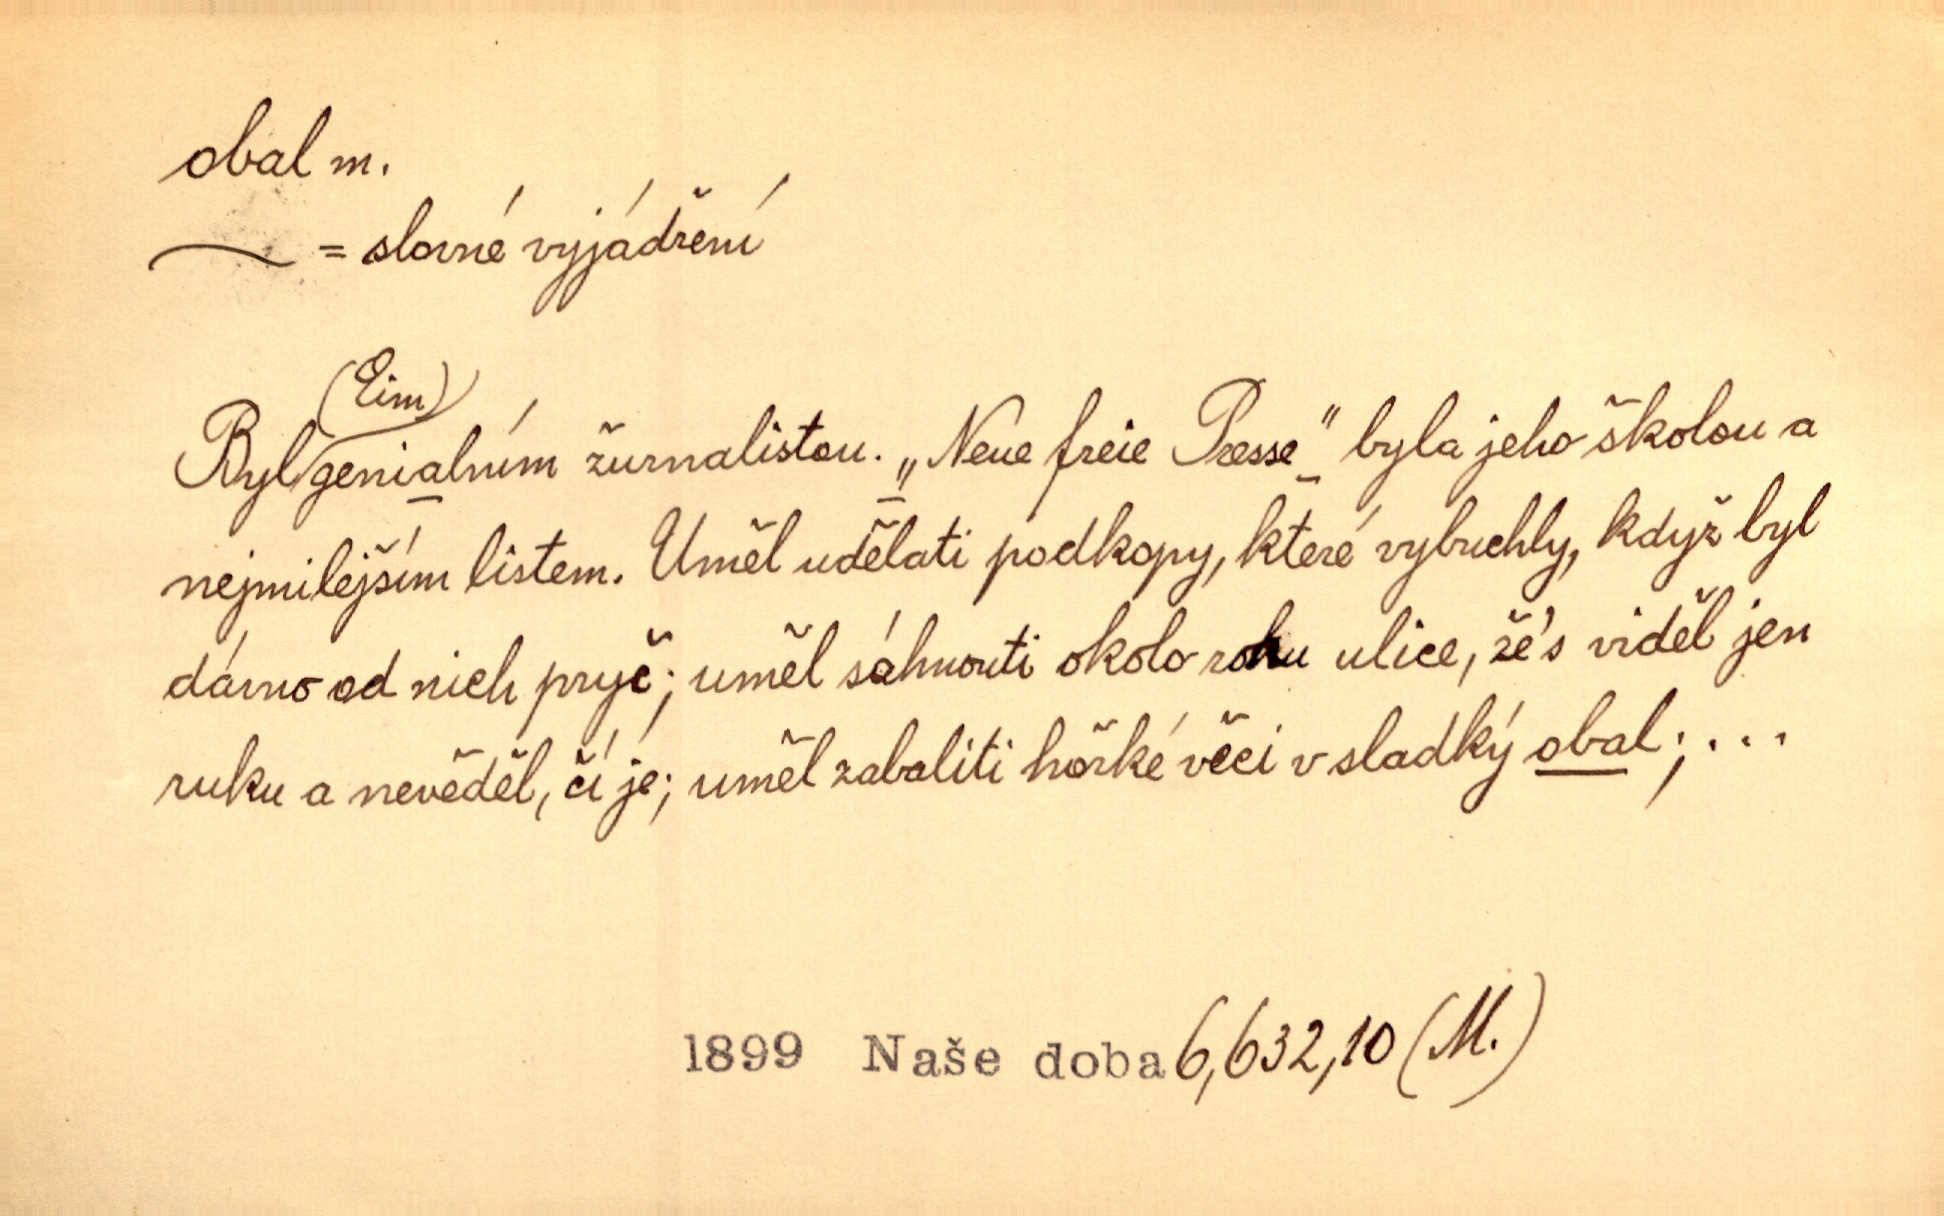 obal m.
= slovné vyjádření
(Eim)
Byl genialním žurnalistou. „Neue freie Presse“ byla jeho školou a
nejmilejším listem. Uměl udělati podkopy, které vybuchly, když byl
dávno od nich pryč; uměl sáhnouti okolo rohu ulice, že's viděl jen
ruku a nevěděl, čí je; uměl zabaliti hořké věci v sladký obal; ...
1899 Naše doba 6,632,10 (M.)